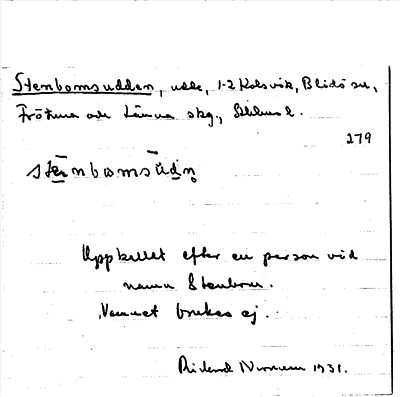 Stenbomsudden, udde, 1-2 Kolsvik, Blidö sn,
Frötuna och Länna skg., Sthlms l.
279
stēnbomsūdn̥
Uppkallat efter en person vid
namn Stenbom.
Namnet brukas ej.
Rickard Norman 1931.